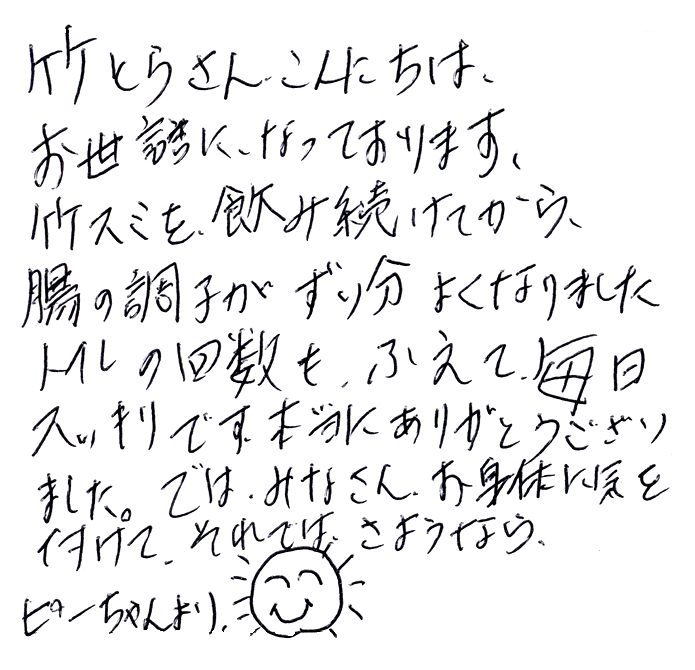 竹とらさん、こんにちは、
お世話に、なっております、
竹スミを、飲み続けてから、
腸の調子がずい分よくなりました
トイレの回数も、ふえて、毎日
スッキリです、本当にありがとうござい
ました。では、みなさん、お身体に気を
付けて、それでは、さようなら、
ピーちゃんより、